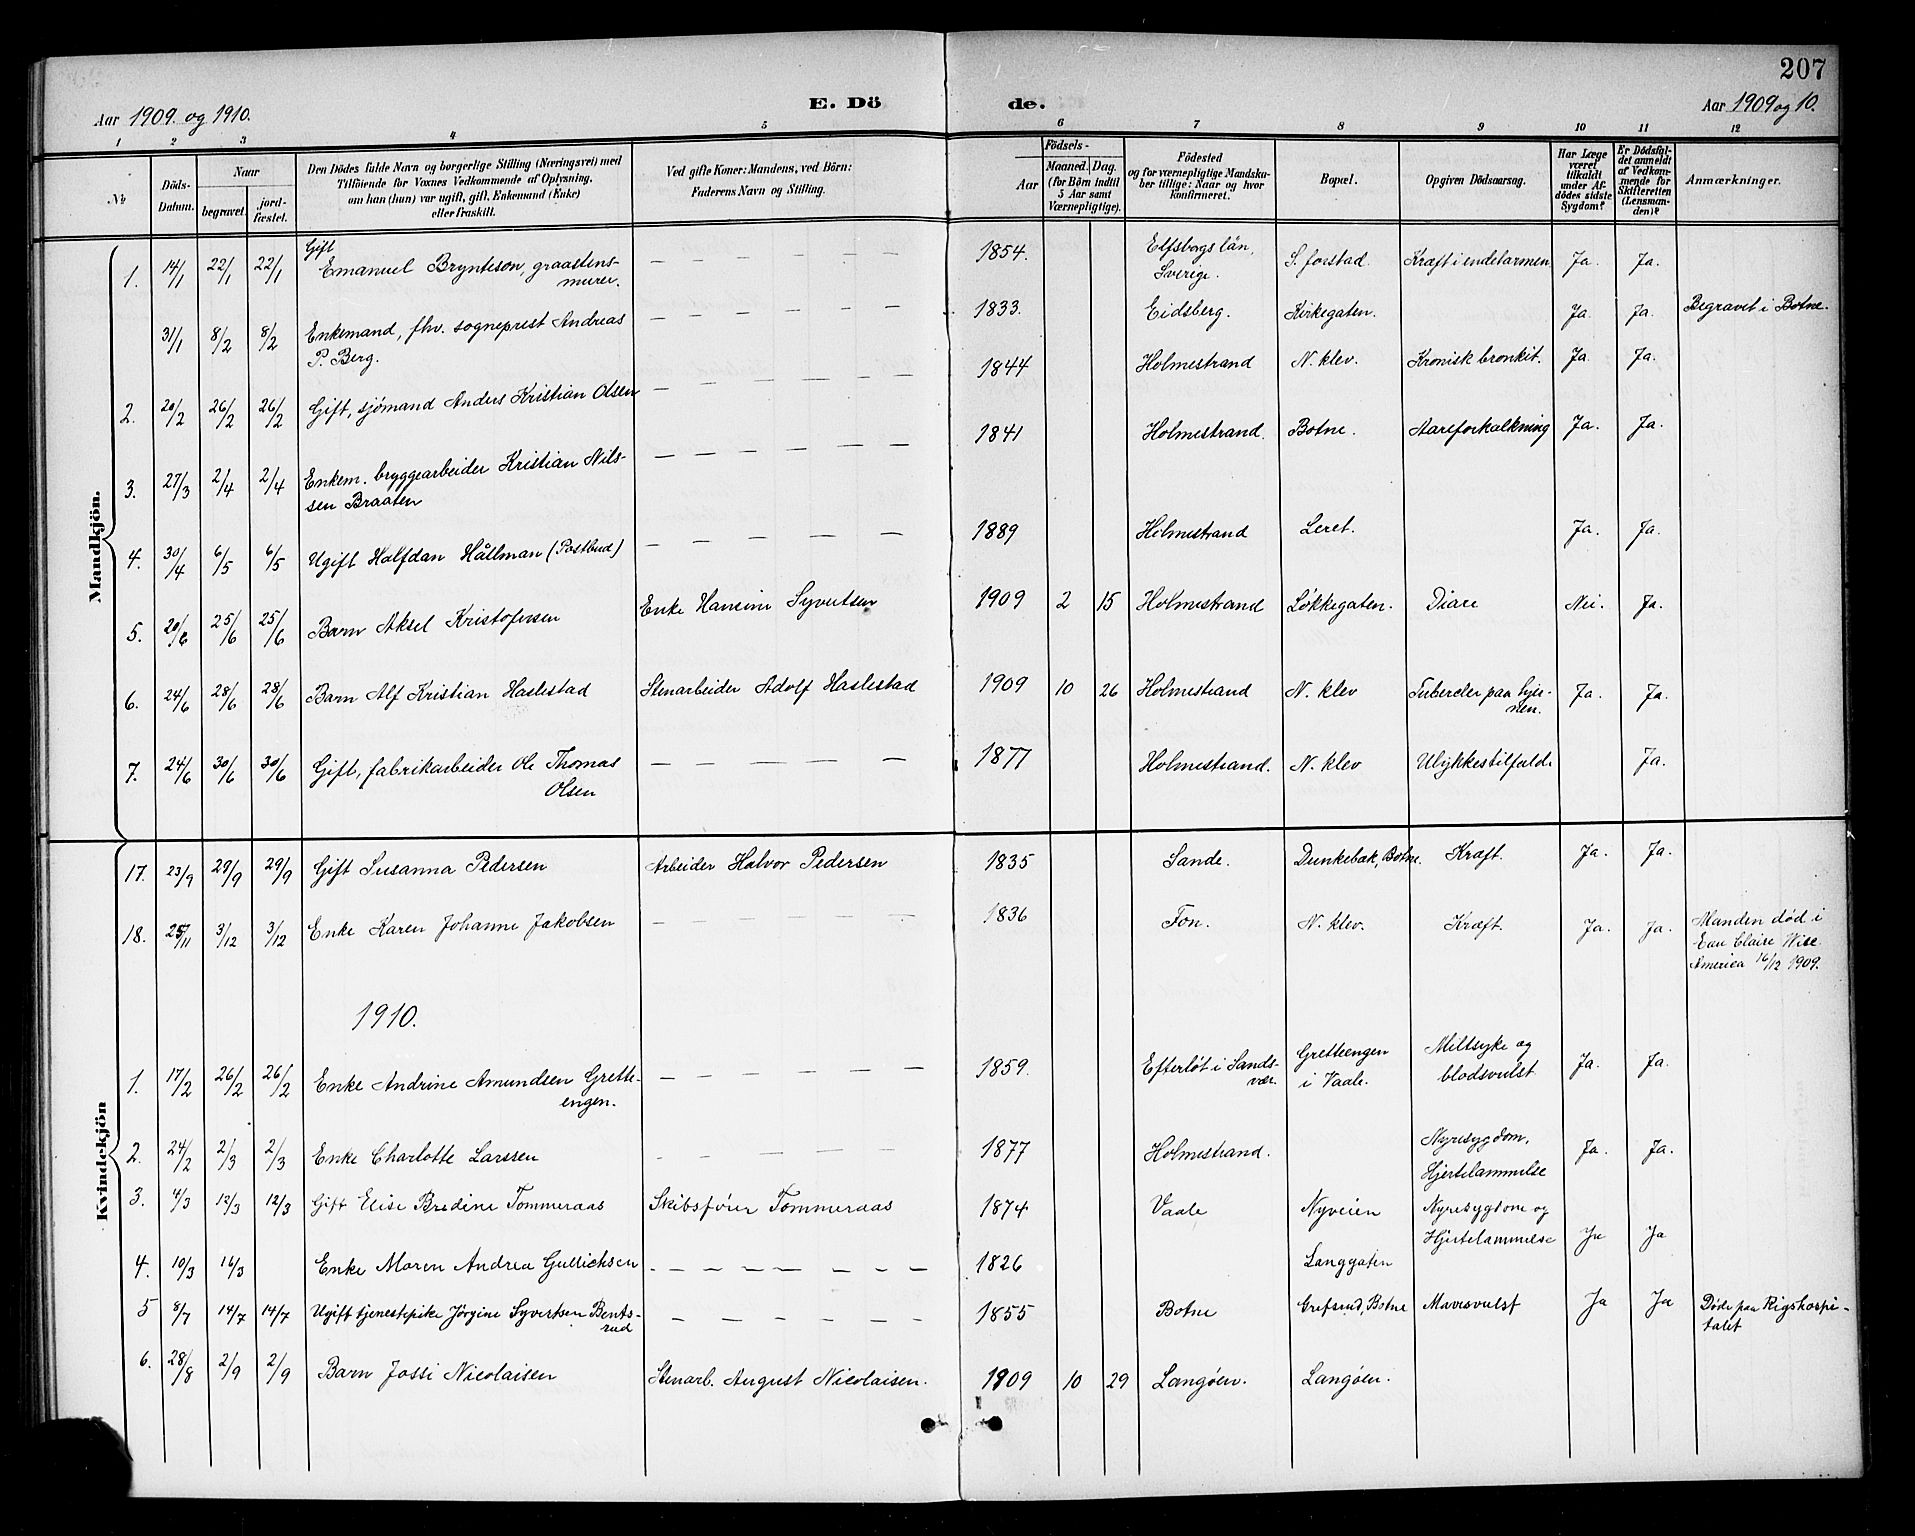 207
Aar 1909. og 1910.
E. Dö de.
Aar 1909 og 10.
1 2 3 4 5 6 7 8 9 10 11 12
№
Döds-Datum.
Naar
begravet.
jord-fæstet.
Den Dödes fulde Navn og borgerlige Stilling (Næringsvei) med
Tilföiende for Voxnes Vedkommende af Oplysning,
om han (hun) var ugift, gift, Enkemand (Enke)
eller fraskilt.
Ved gifte Koner: Mandens, ved Börn:
Faderens Navn og Stilling.
Födsels-
Aar
Maaned. Dag.
(for Börn indtil
5 Aar samt
Værnepligtige).
Födested
og for værnepligtige Mandska-
ber tillige: Naar og hvor
konfirmeret.
Bopæl.
Opgiven Dödsaarsag.
Har Læge
været
tilkaldt
under Af-
dödes sidste
Sygdom?
Er Dödsfal-
det anmeldt
af Vedkom-
mende for
Skifteretten
(Lensman-
den)?
Anmærkninger.
Mandkjön.
1. 14/1 22/1 22/1 Gift
Emanuel Brynteson, graastens-
murer. — — — — — — 1854. Elfsborgs län,
Sverige. S. forstad. Kræft i endetarmen Ja. Ja.
31/1 8/2 8/2 Enkemand, fhv. sogneprest Andreas
P. Berg. — — — — — — 1833. Eidsberg. Kirkegaten. Ja. Ja. Begravet i Botne.
2. 20/2 26/2 26/2 Gift, sjömand Anders Kristian Olsen — — — — — — 1844 Holmestrand N. klev. Kronisk bronkit. Ja. Ja.
3. 27/3 2/4 2/4 Enkem. bryggearbeider Kristian Nils-
sen Braaten — — — — — — 1841 Holmestrand. Botne. Aareforkalkning Ja. Ja.
4. 30/4 6/5 6/5 Ugift Halfdan Hållman (Postbud) — — — — — 1889 Holmestrand Leret. Ja. Ja.
5. 20/6 25/6 25/6 Barn Aksel Kristofersen Enke Hansine Syvertsen 1909 2 15 Holmestrand Løkkegaten. Diare Nei. Ja.
6. 24/6 28/6 28/6 Barn Alf Kristian Haslestad Stenarbeider Adolf Haslestad 1909 10 26 Holmestrand N. klev Tubercler paa hjer-
nen. Ja. Ja.
7. 24/6 30/6 30/6 Gift, fabrikarbeider Ole Thomas
Olsen — — — — — — 1877 Holmestrand. N. klev Ulykkestilfælde Ja.
Kvindekjön
17. 23/9 29/9 29/9 Gift Susanna Pedersen Arbeider Halvor Pedersen 1835 Sande. Dunkebæk, Botne. Kræft. Ja. Ja.
18. 25/11 3/12 3/12 Enke Karen Johanne Jakobsen — — — — — — 1836 Fon. N. klev. Kræft. Ja. Ja. Manden død i
Eau Claire Wisc.
America 16/12 1909.
1910.
1. 17/2 26/2 26/2 Enke Andrine Amundsen Grette-
engen. — — — — — — 1859. Efterløt i Sands-
vær. Gretteengen
i Vaale. Miltsyke og
blodsvulst Ja. Ja.
2. 24/2 2/3 2/3 Enke Charlotte Larssen — — — — — — 1877 Holmestrand. Nyresygdom,
Hjertelammelse Ja. Ja.
3. 4/3 12/3 12/3 Gift Elise Bredine Tommeraas Skibsfører Tommeraas 1874 Vaale Nyveien Nyresygdom og
Hjertelammelse Ja Ja
4. 10/3 16/3 Enke Maren Andrea Gullichsen — — — — — — — 1826 Langgaten
5 8/7 14/7 14/7 Ugift tjenestepike Jørgine Syvertsen Bents-
rud — — — — — — 1855 Botne Grefsrud, Botne Mavesvulst Ja Ja Døde paa Rigshospi-
talet
6. 28/8 2/9 2/9 Barn Jossi Nicolaisen Stenarb. August Nicolaisen. 1909 10 29 Langøen. Langøen.